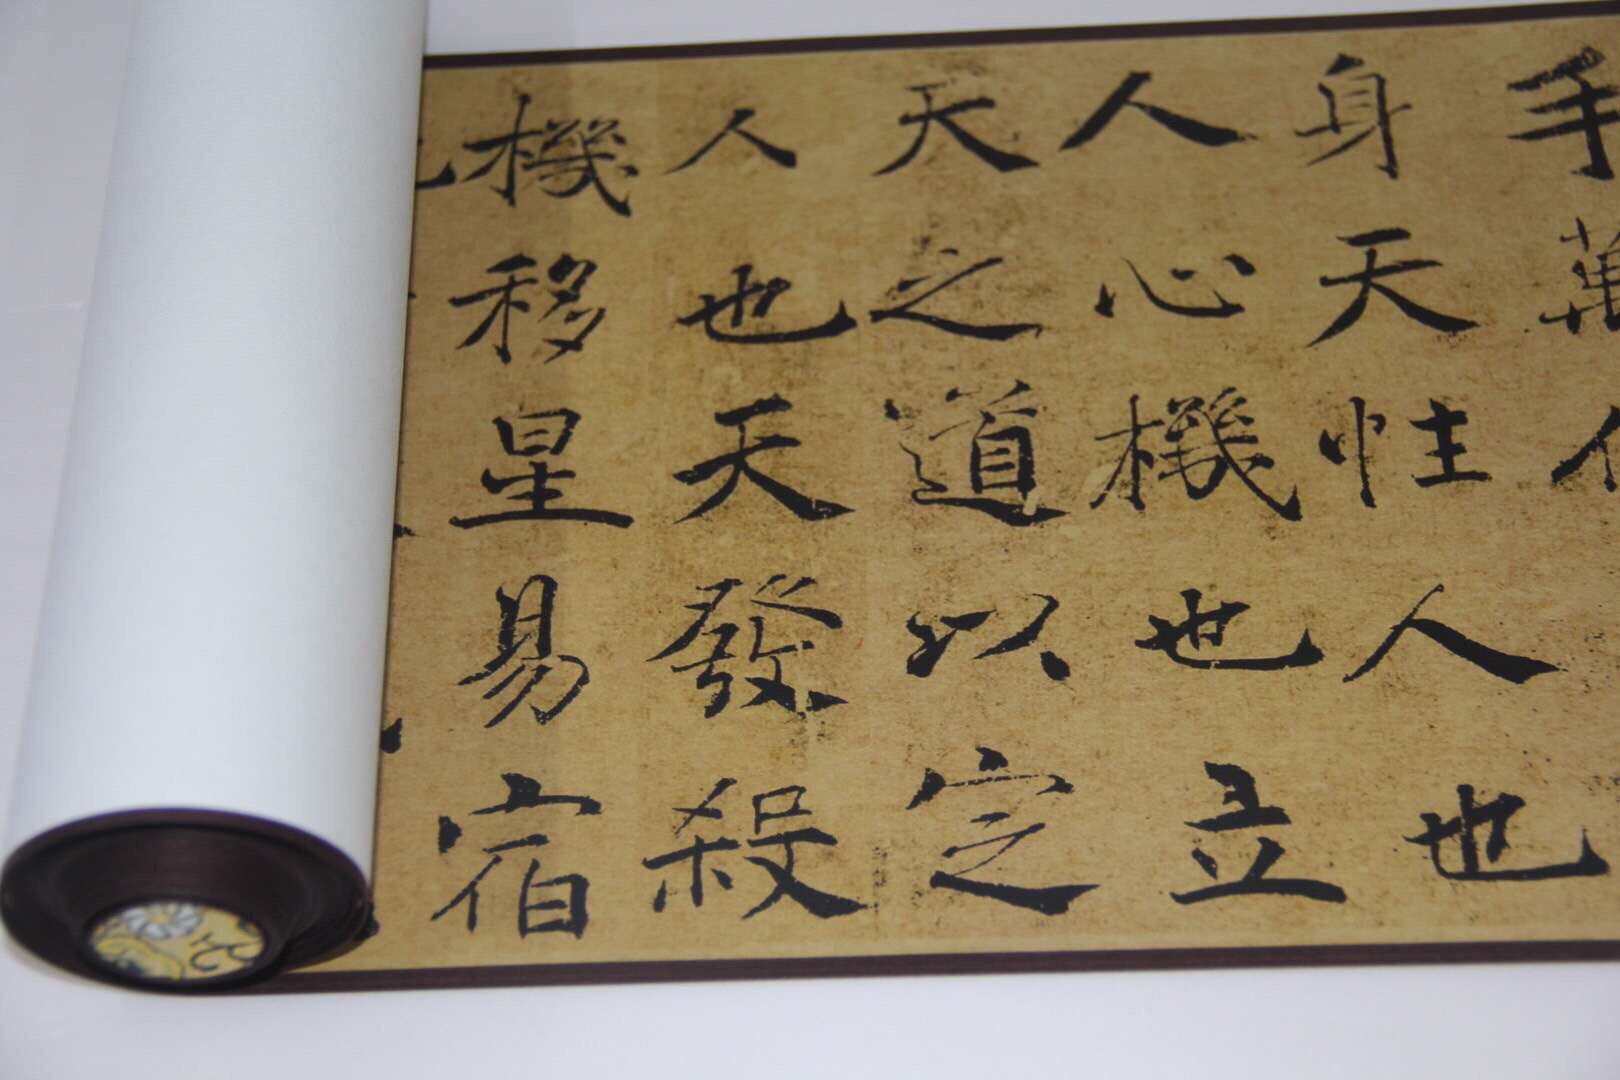 手萬
身天性人也
人心機也立
天之道以定
人也天發殺
機移星易宿